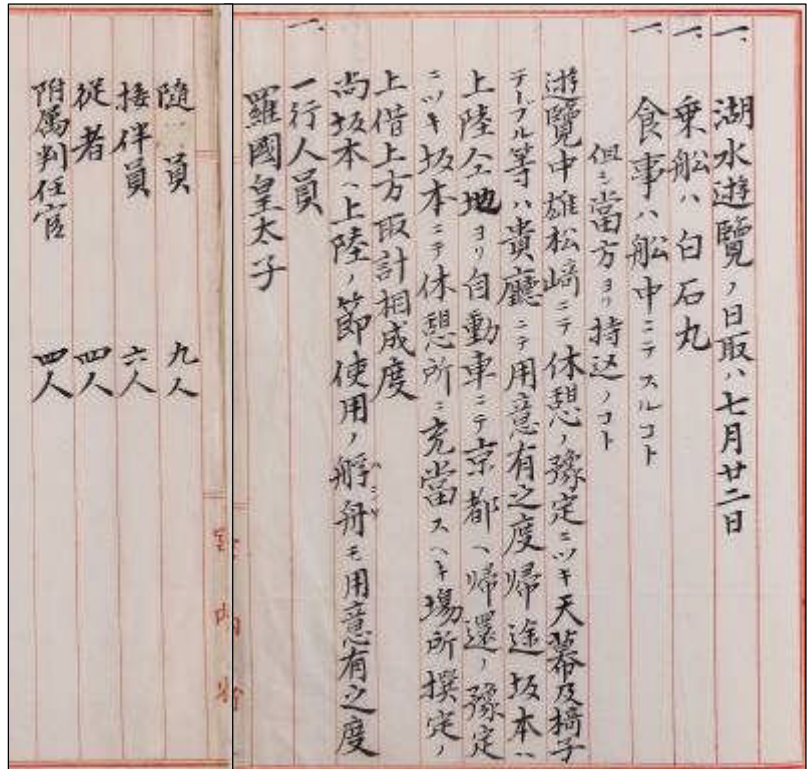 一、湖水遊覧ノ日取ハ七月廿二日
一、乗船ハ白石丸
一、食事ハ船中ニテスルコト
但シ當方ヨリ持込ノコト
遊覧中雄松崎ニテ休憩ノ豫定ニツキ天幕及椅子
テーブル等ハ貴廳ニテ用意有之度帰途坂本ヘ
上陸仝地ヨリ自動車ニテ京都ヘ帰還ノ豫定
ニツキ坂本ニテ休憩所ニ充當スヘキ場所撰定ノ
上借上方取計相成度
尚坂本ヘ上陸ノ節使用ノ艀舟モ用意有之度
一、一行人員
羅國皇太子
隨員 九人
接伴員 六人
従者 四人
附属判任官 四人
宮内省